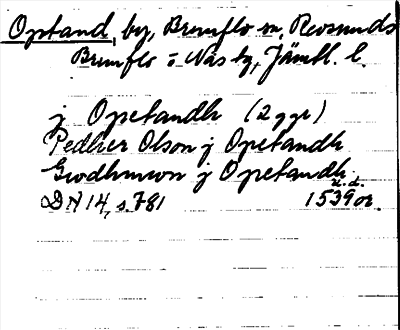 Opstand, by, Brunflo sn, Revsunds
Brunflo o. Näs tg, Jämtl. l.
j Opstandh (2 ggr)
Pedher Olson j Opstandh
Gwdhmwn j Opstandh
u.d.
DN 14, s. 781 1539 or.